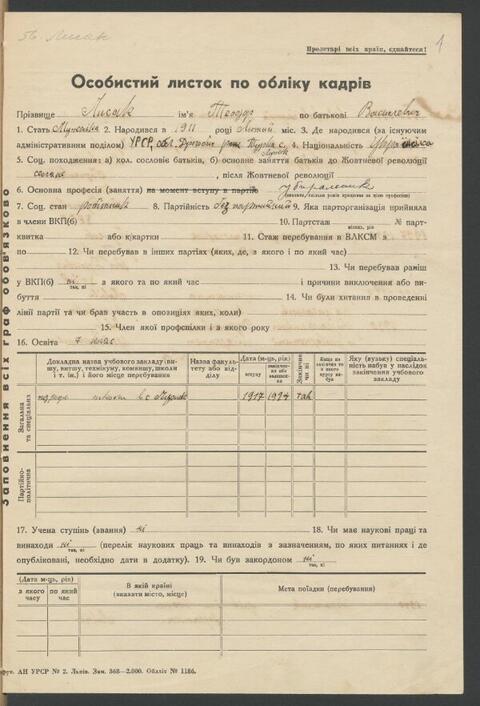 56. Лисак
1
Пролетарі всіх країн, єднайтеся!
Особистий листок по обліку кадрів
Прізвище Лисак ім'я Теодор по батькові Васильевич
1. Стать 2. Народився в 1911 році Лютий міс. 3. Де народився (за існуючим
адміністративним поділом) УРСР, обл. Дрогоб. с. 4. Національність
5. Соц. походження: а) кол. сословіє батьків, б) основне заняття батьків до Жовтневої революції
, після Жовтневої революції
6. Основна професія (заняття) на момент вступу в партію
7. Соц. стан робітник 8. Партійність безпартійний 9. Яка парторганізація прийняла
в члени ВКП(б) 10. Партстаж № парт-
квитка або к/картки 11. Стаж перебування в ВЛКСМ з
по 12. Чи перебував в інших партіях (яких, де, з якого і по який час)
13. Чи перебував раніш
у ВКП(б) ні з якого та по який час і причини виключення або ви-
так, ні
буття 14. Чи були хитання в проведенні
лінії партії та чи брав участь в опозиціях яких, коли)
15. Член якої профспілки і з якого року
16. Освіта 7 клас
Докладна назва учбового закладу (ви-
шу, витшу, технікуму, комвишу, школи
і т. ін.) і його місце перебування
Назва факуль-
тету або від-
ділу
Дата (м-ць, рік)
вступу
закінчен-
ня або
вибуття
Закінчив
чи ні
Яку (вузьку) спеціаль-
ність набув у наслідок
закінчення учбового
закладу
Загальна
та спеціальна
школа в с. 1917 1924 так
Партійно-
політична
17. Учена ступінь (звання) ні 18. Чи має наукові праці та
винаходи ні (перелік наукових праць та винаходів з зазначенням, по яких питаннях і де
так, ні
опубліковані, необхідно дати в додатку). 19. Чи був закордоном ні
так, ні
(Дата м-ць, рік)
з якого
часу
по який
час
В якій країні
(вказати місто, місце)
Мета поїздки (перебування)
Заповнення всіх граф обов'язково
АН УРСР № 2. Львів. Зам. 368—2.000. Обліт № 1186.